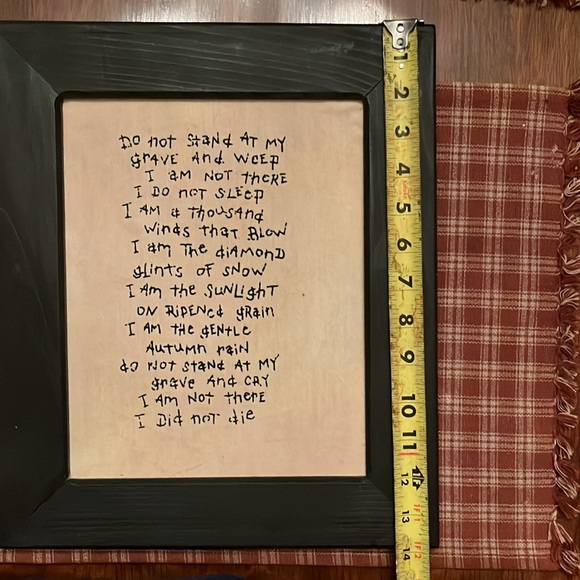 Do not stand AT MY
grave And weep
I am NOT there
I Do not SLEep
I AM a thousand
winds that Blow
I am The diamond
glints of snow
I Am the Sunlight
on Ripened grain
I AM the gentle
Autumn rain
do not stand At MY
grave And CRY
I Am Not there
I Did not die
1
2
3
4
5
6
7
8
9
10
11
12
13
14